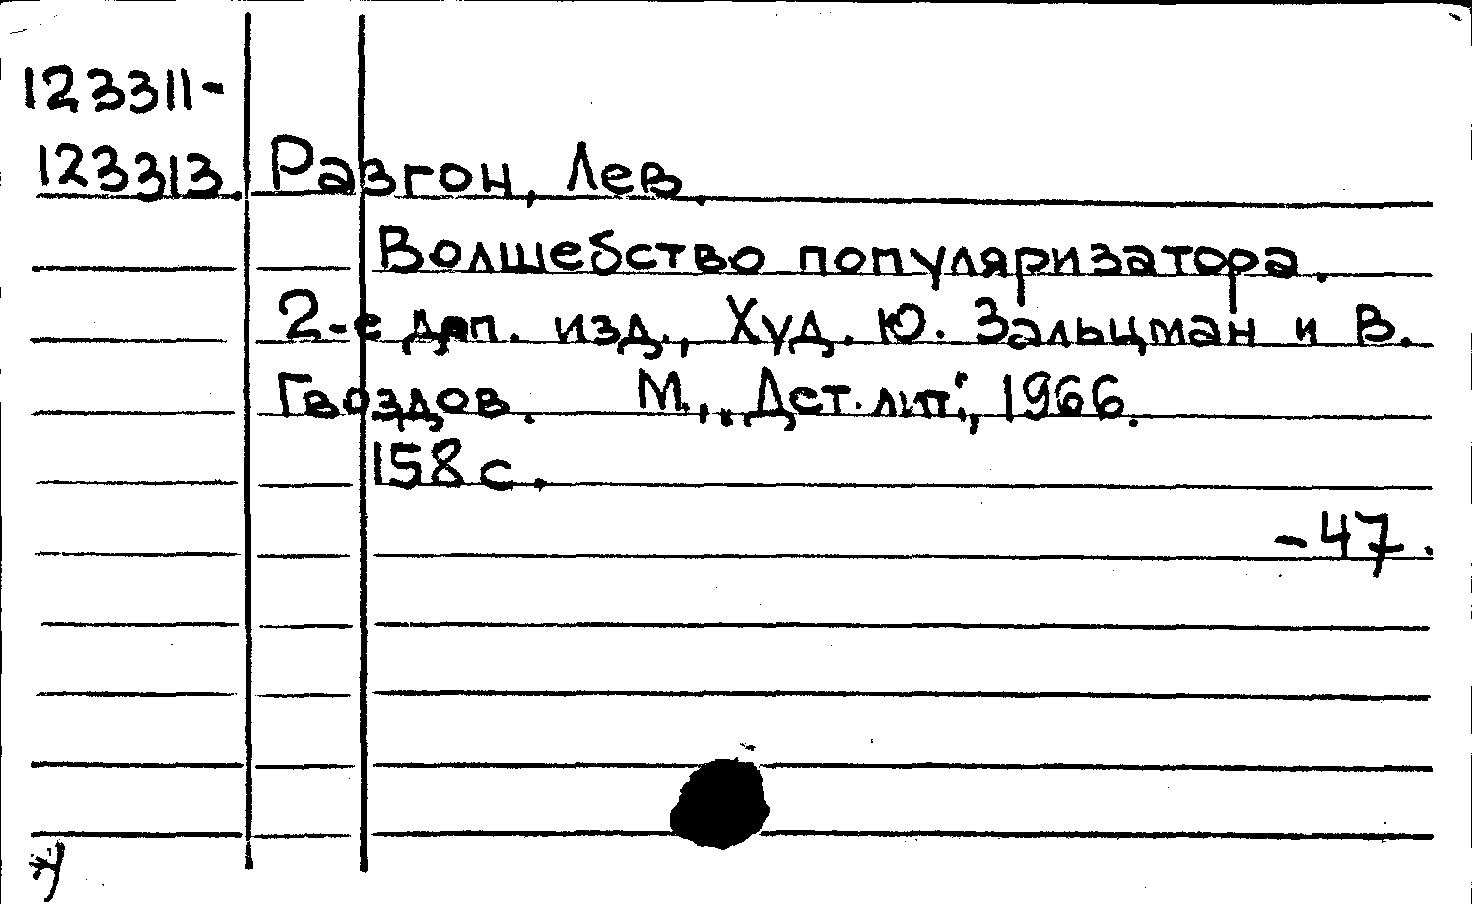 123311-
123313. Разгон, Лев.
Волшебство популяризатора.
2-е доп. изд., Худ. Ю. Зальцман и В.
Гвоздов. М., „Дет. лит.“, 1966.
158 с.
-47.